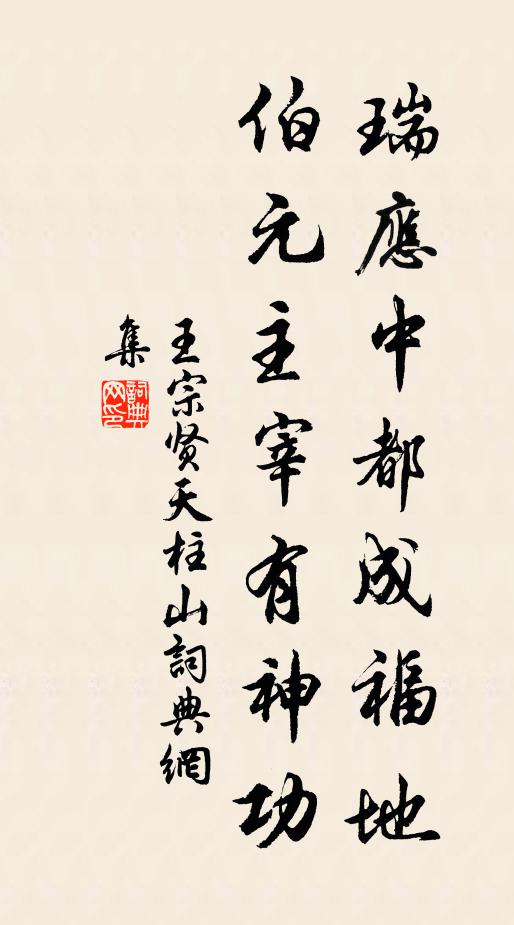 瑞應中都成福地
伯元主宰有神功
王宗贤天柱山詞典網
集
詞典網印